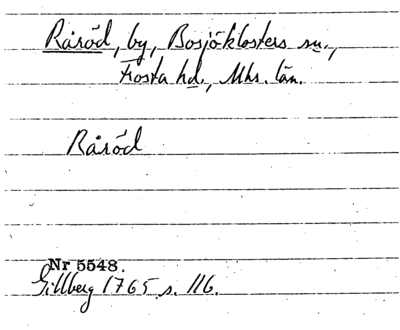 Råröd, by, Bosjöklosters sn.,
Frosta hd., Mhs. län.
Råröd
Nr 5548.
Gillberg 1765 s. 116.